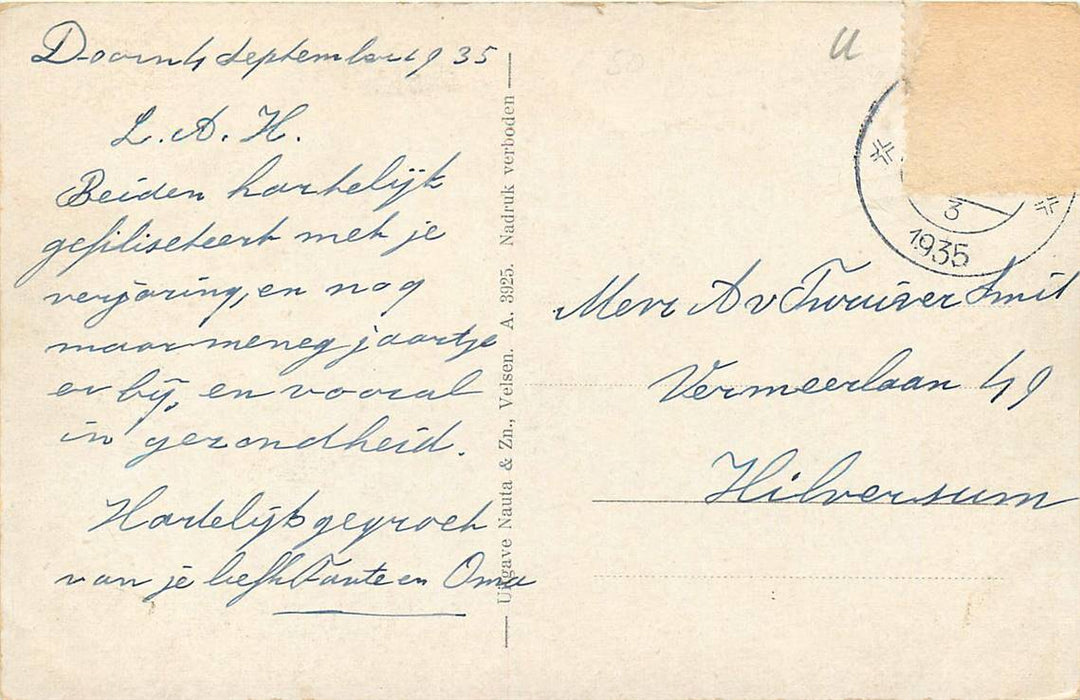 Doorn 4 September 1935
L. A. H.
Beiden hartelijk
gefiliseteert met je
verjaring, en nog
maar meneg jaartje
er bij, en vooral
in gezondheid.
Hartelijk gegroet
van je liefh Tante en Oma
Uitgave Nauta & Zn., Velsen. A. 3925. Nadruk verboden
U
3
1935
Mevr A v Smit
Vermeerlaan 49
Hilversum